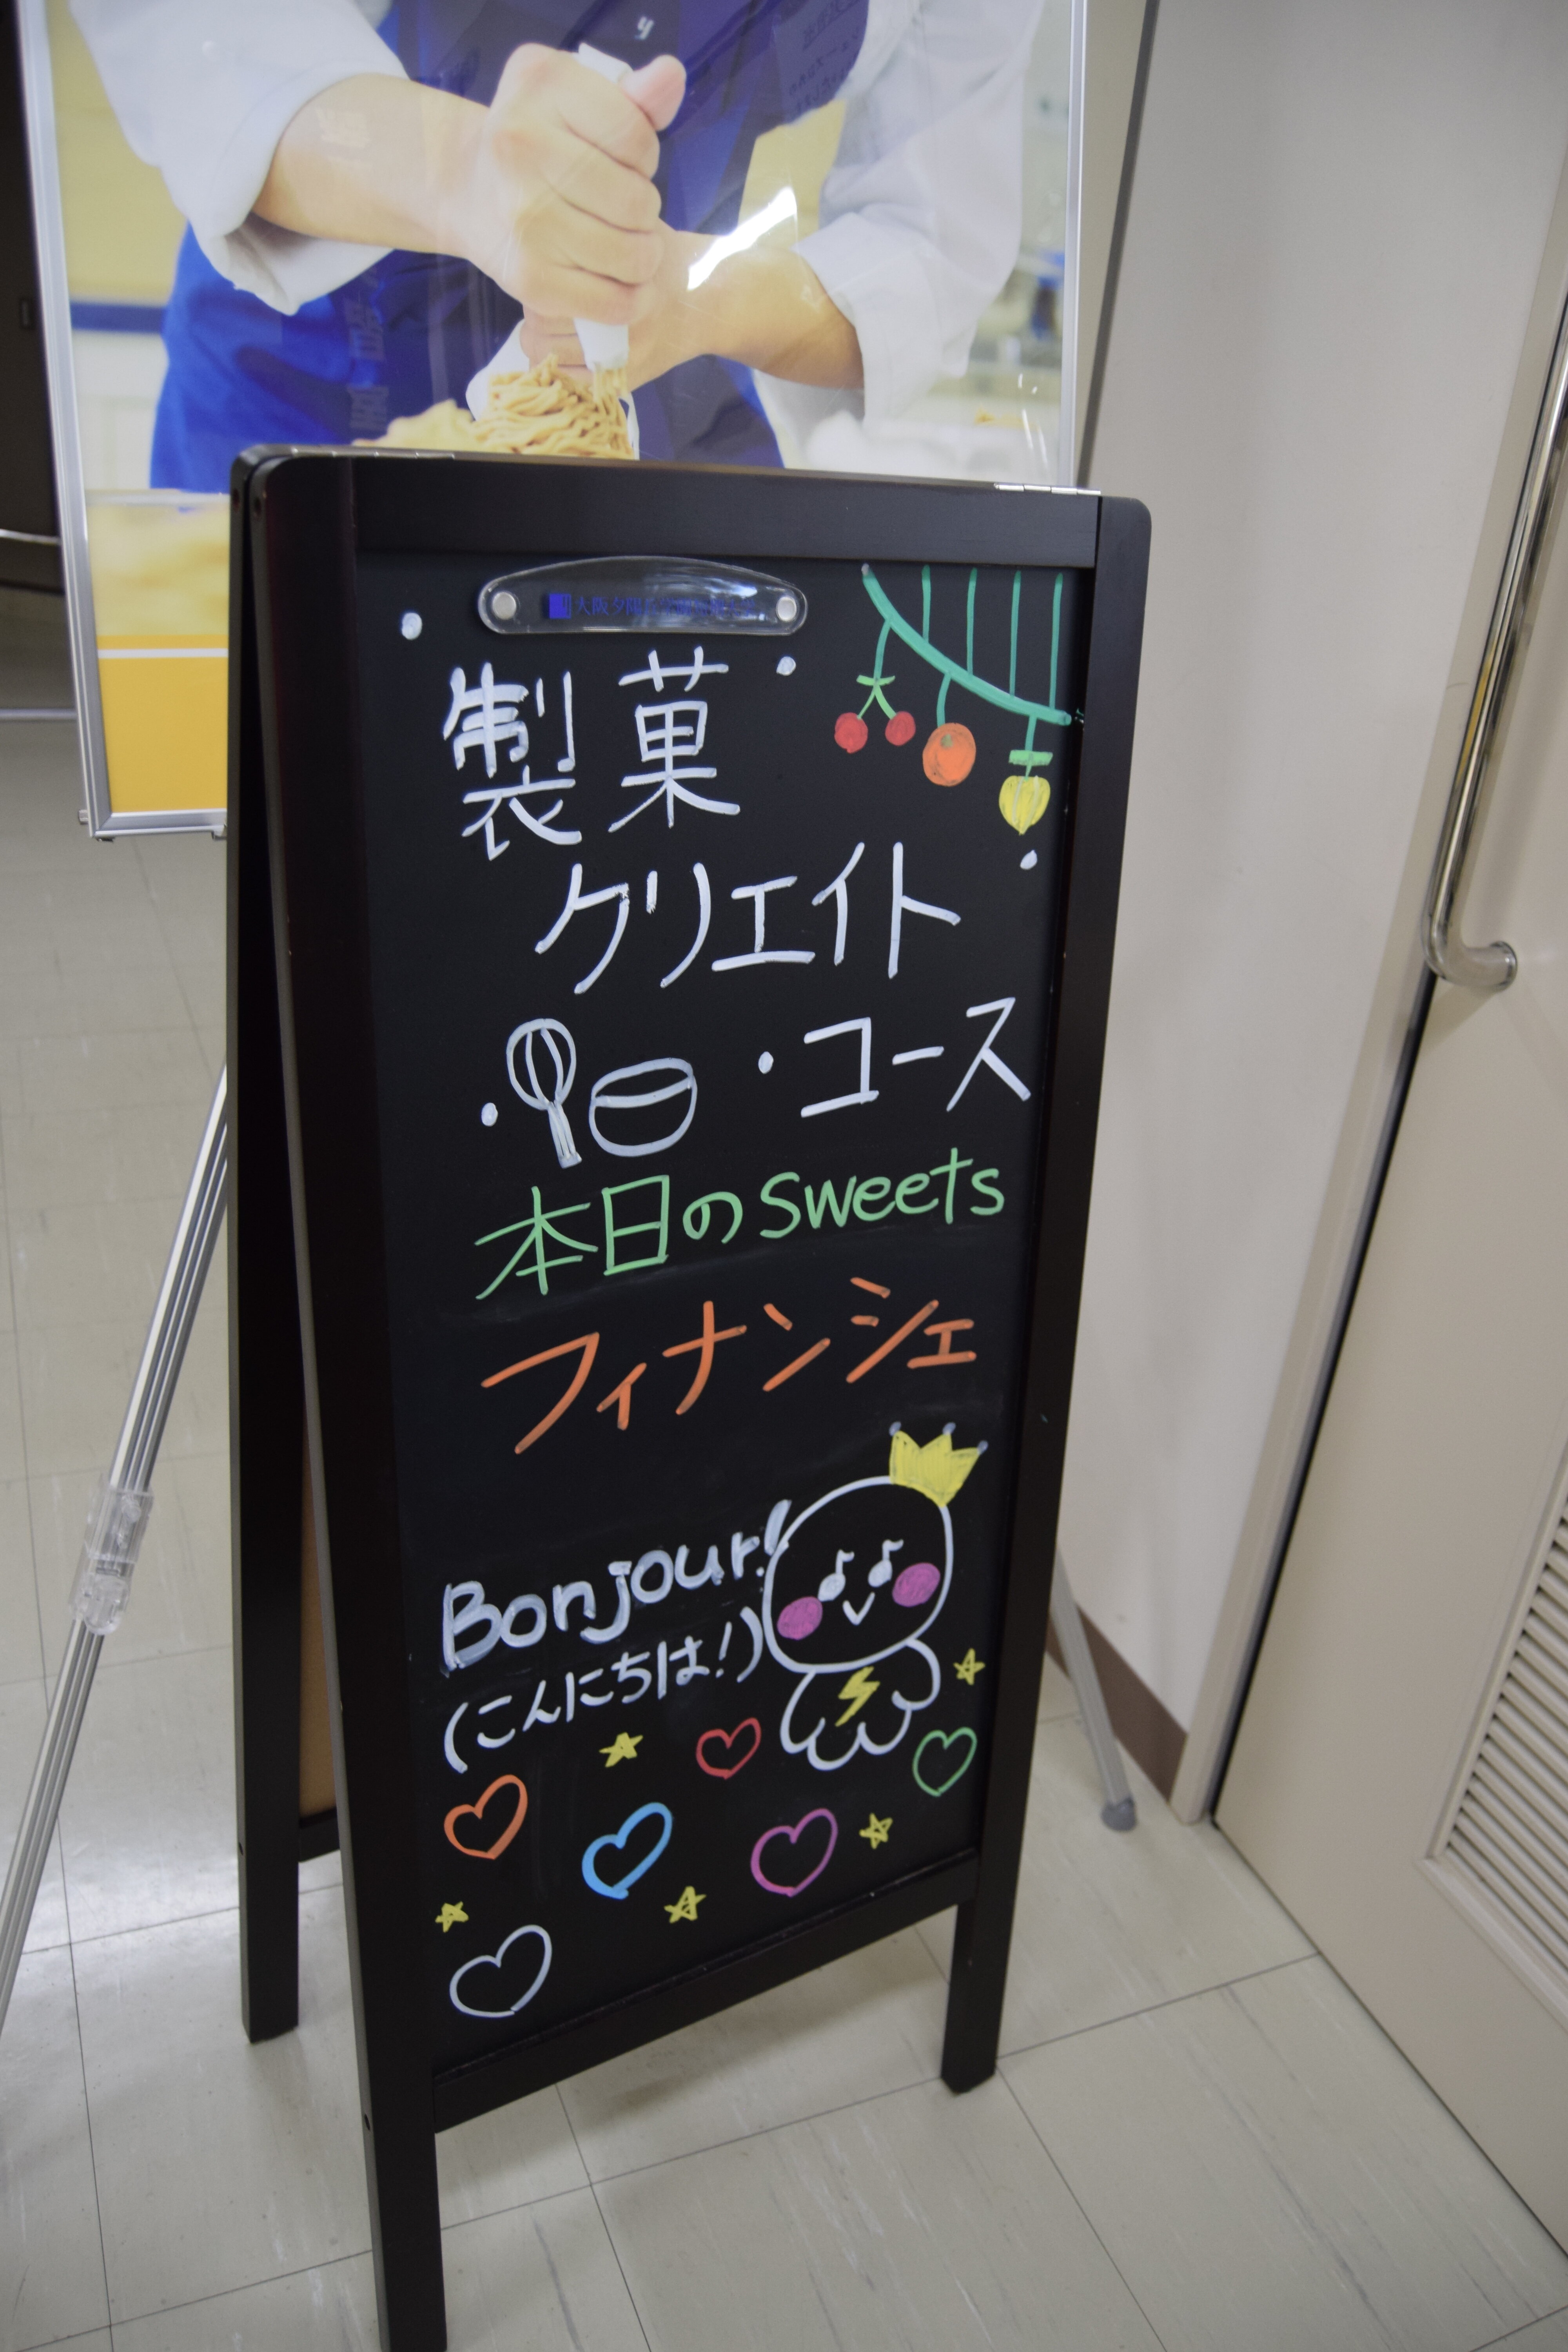 製菓
クリエイト
・コース
本日のsweets
フィナンシェ
Bonjour!
(こんにちは!)